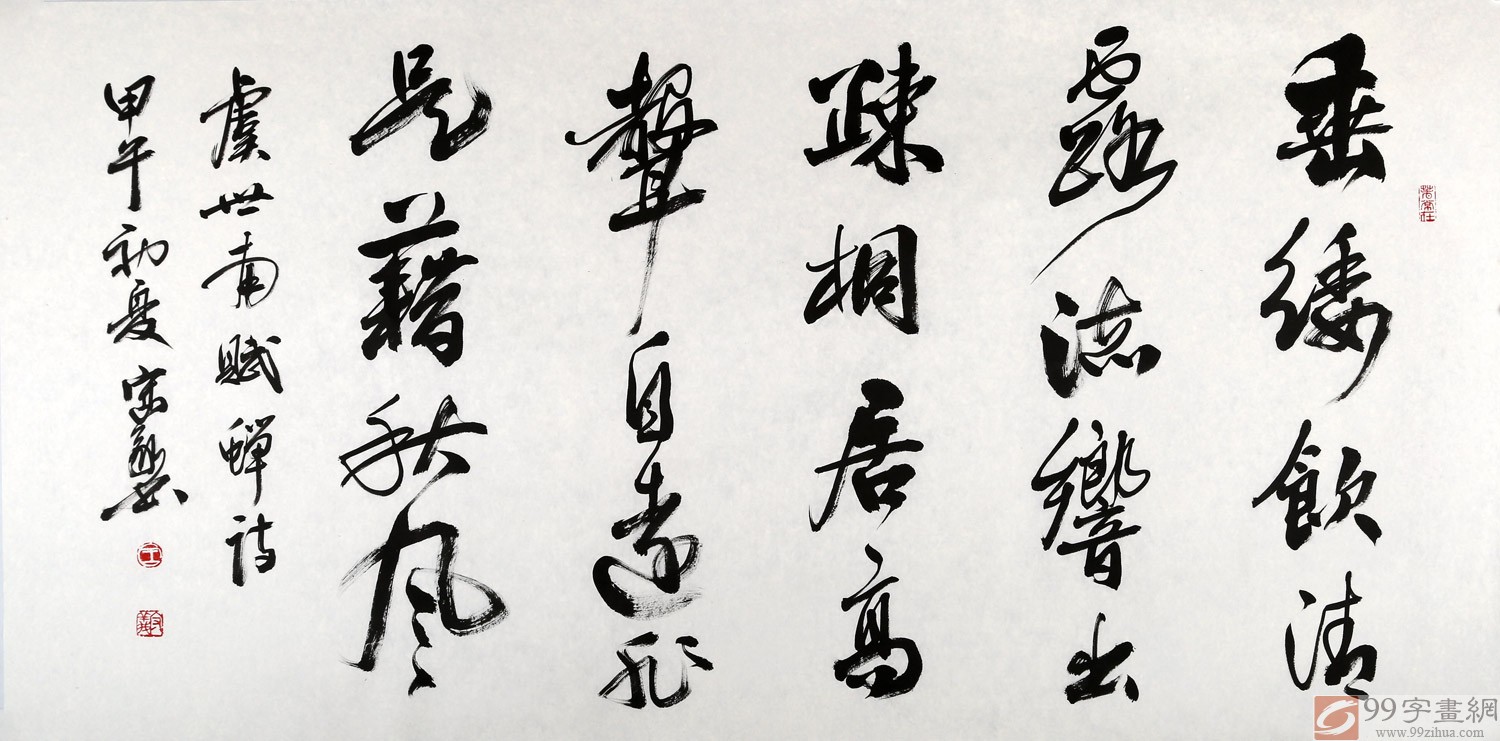 垂緌飲清
露流響出
疎桐居高
聲自遠非
是藉秋風
虞世南賦蟬詩
甲午初夏
99字畫網
www.99zihua.com